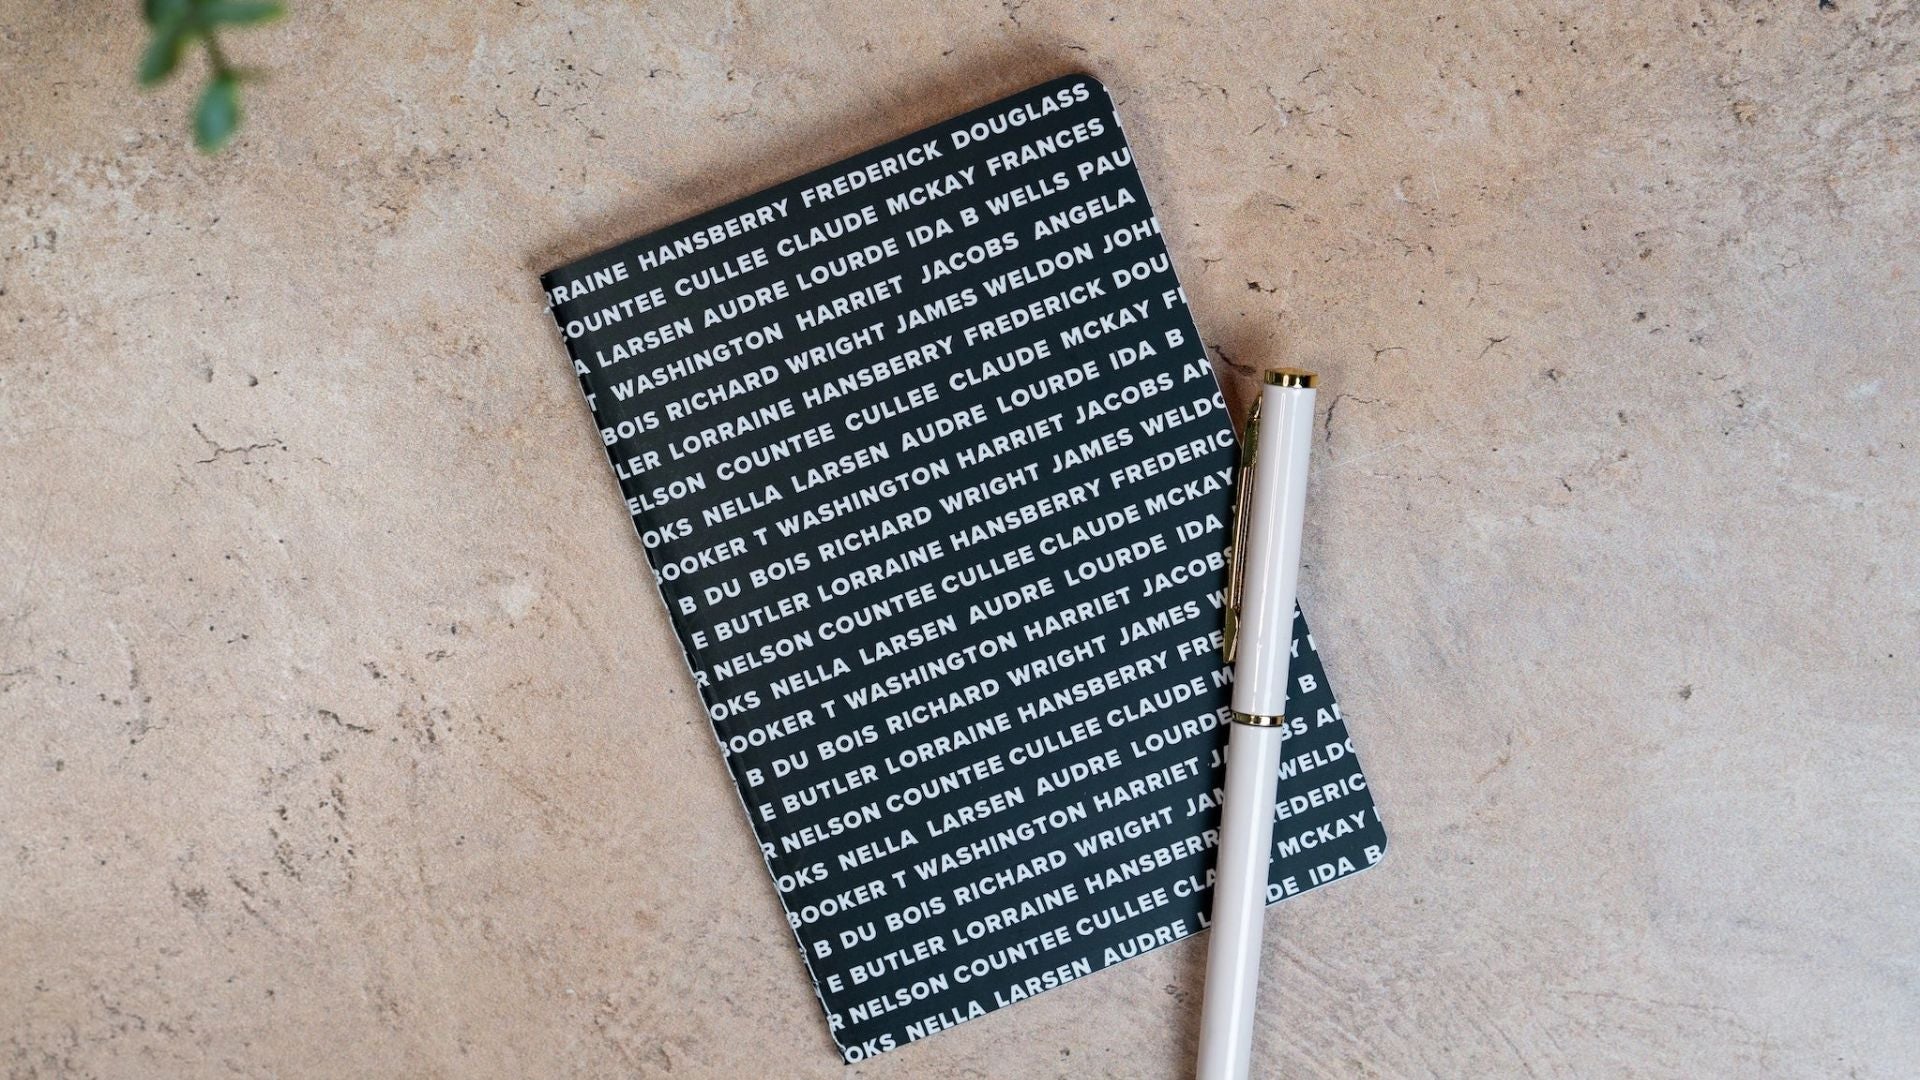 RRAINE HANSBERRY FREDERICK DOUGLASS
COUNTEE CULLEE CLAUDE MCKAY FRANCES
A LARSEN AUDRE LOURDE IDA B WELLS PAU
T WASHINGTON HARRIET JACOBS ANGELA
BOIS RICHARD WRIGHT JAMES WELDON JOH
LER LORRAINE HANSBERRY FREDERICK DOU
ELSON COUNTEE CULLEE CLAUDE MCKAY F
OKS NELLA LARSEN AUDRE LOURDE IDA B
BOOKER T WASHINGTON HARRIET JACOBS AN
B DU BOIS RICHARD WRIGHT JAMES WELDO
E BUTLER LORRAINE HANSBERRY FREDERIC
R NELSON COUNTEE CULLEE CLAUDE MCKAY
OKS NELLA LARSEN AUDRE LOURDE IDA
BOOKER T WASHINGTON HARRIET JACOBS
B DU BOIS RICHARD WRIGHT JAMES W
E BUTLER LORRAINE HANSBERRY FRE
R NELSON COUNTEE CULLEE CLAUDE M Y
OKS NELLA LARSEN AUDRE LOURDE A B
BOOKER T WASHINGTON HARRIET J BS AN
B DU BOIS RICHARD WRIGHT JAM WELDO
E BUTLER LORRAINE HANSBERRY EDERIC
R NELSON COUNTEE CULLEE CLA E MCKAY
OKS NELLA LARSEN AUDRE L DE IDA B